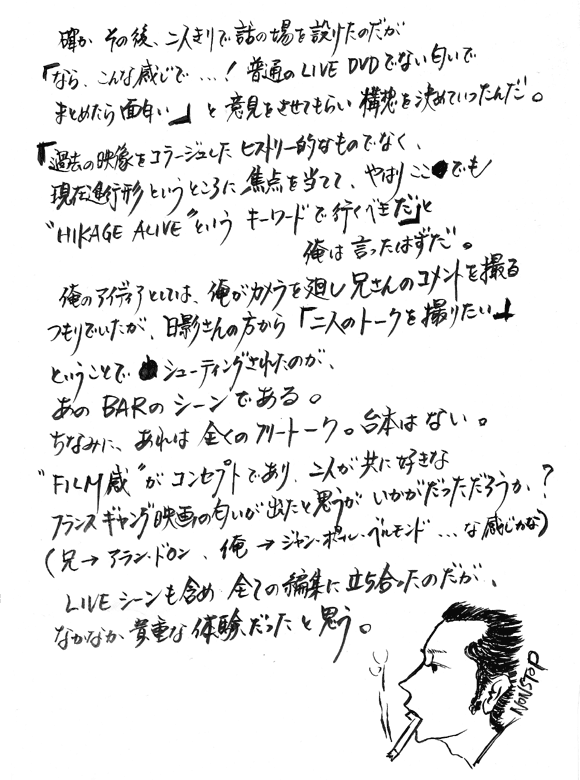 確か その後、二人きりで話の場を設けたのだが
「なら、こんな感じで…！ 普通のLIVE DVDでない匂いで
まとめたら面白い」と 意見をさせてもらい 構想を決めていったんだ。
「過去の映像をコラージュした ヒストリー的なものでなく、
現在進行形というところに 焦点を当てて、やはり ここでも
“HIKAGE ALIVE”という キーワードで行くべきだ」と
俺は言ったはずだ。
俺のアイディアとしては、俺がカメラを廻し兄さんのコメントを撮る
つもりでいたが、日影さんの方から「二人のトークを撮りたい」
ということで シューティングされたのが、
あの BARのシーンである。
ちなみに、あれは 全くのフリートーク。台本はない。
“FILM感”が コンセプトであり、二人が共に好きな
フランスギャング映画の匂いが出たと思うが いかがだっただろうか？
(兄→アラン・ドロン、俺→ジャン・ポール・ベルモンド…な感じかな)
LIVEシーンも含め 全ての編集に立ち合ったのだが、
なかなか 貴重な体験だったと思う。
NONSTOP